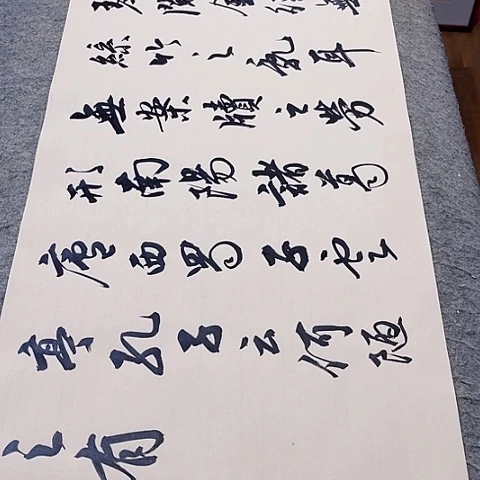 琴閱金經無
絲竹之亂耳
無案牘之勞
形南陽諸葛
廬西蜀子雲
亭孔子云何陋
之有